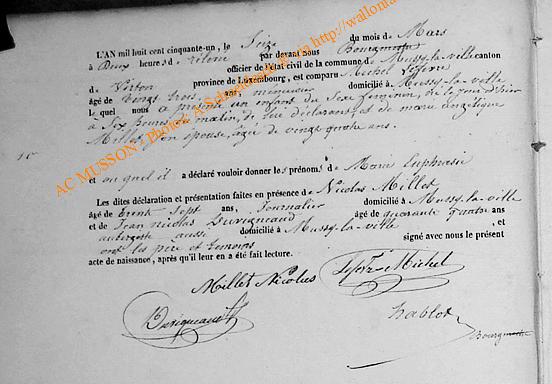 L'AN mil huit cent cinquante-un, le Seize du mois de Mars
à Deux heures de relevé par devant nous Bourgmestre
officier de l'état civil de la commune de Mussy-la-ville canton
de Virton province de Luxembourg, est comparu Michel
âgé de vingt trois ans, menuisier domicilié à Mussy-la-ville
lequel nous a présenté un enfant du sexe féminin, né le jour d'hier
à Six heures du matin, de lui déclarant, et de marie angélique
Millet, son épouse, agée de vingt quatre ans.
1er
et auquel il a déclaré vouloir donner les prénoms de Marie Euphrasie
Les dites déclaration et présentation faites en présence de Nicolas Millet
âgé de trente Sept ans, Journalier domicilié à Mussy-la-ville
et de Jean nicolas Duvigneaud âgé de quarante quatre ans
aubergiste aussi domicilié à Mussy-la-ville, et
ont les père et témoins signé avec nous le présent
acte de naissance, après qu'il leur en a été fait lecture.
Millet Nicolas Michel
Duvigneaud
hablot
Bourgmestre
AC MUSSON - Photos: A. http://wallonia